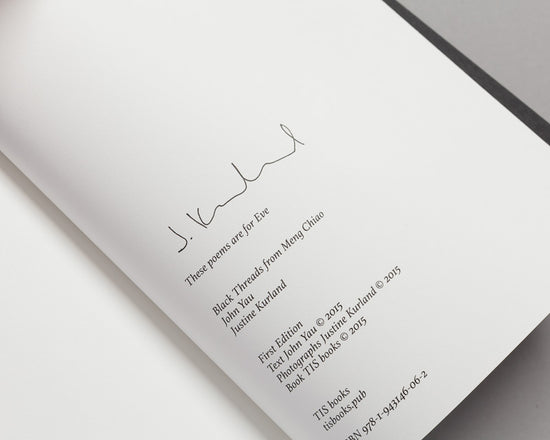 J. Kurland
These poems are for Eve
Black Threads from Meng Chiao
John Yau
Justine Kurland
First Edition
Text John Yau © 2015
Photographs Justine Kurland © 2015
Book TIS books © 2015
TIS books
tisbooks.pub
ISBN 978-1-943146-06-2